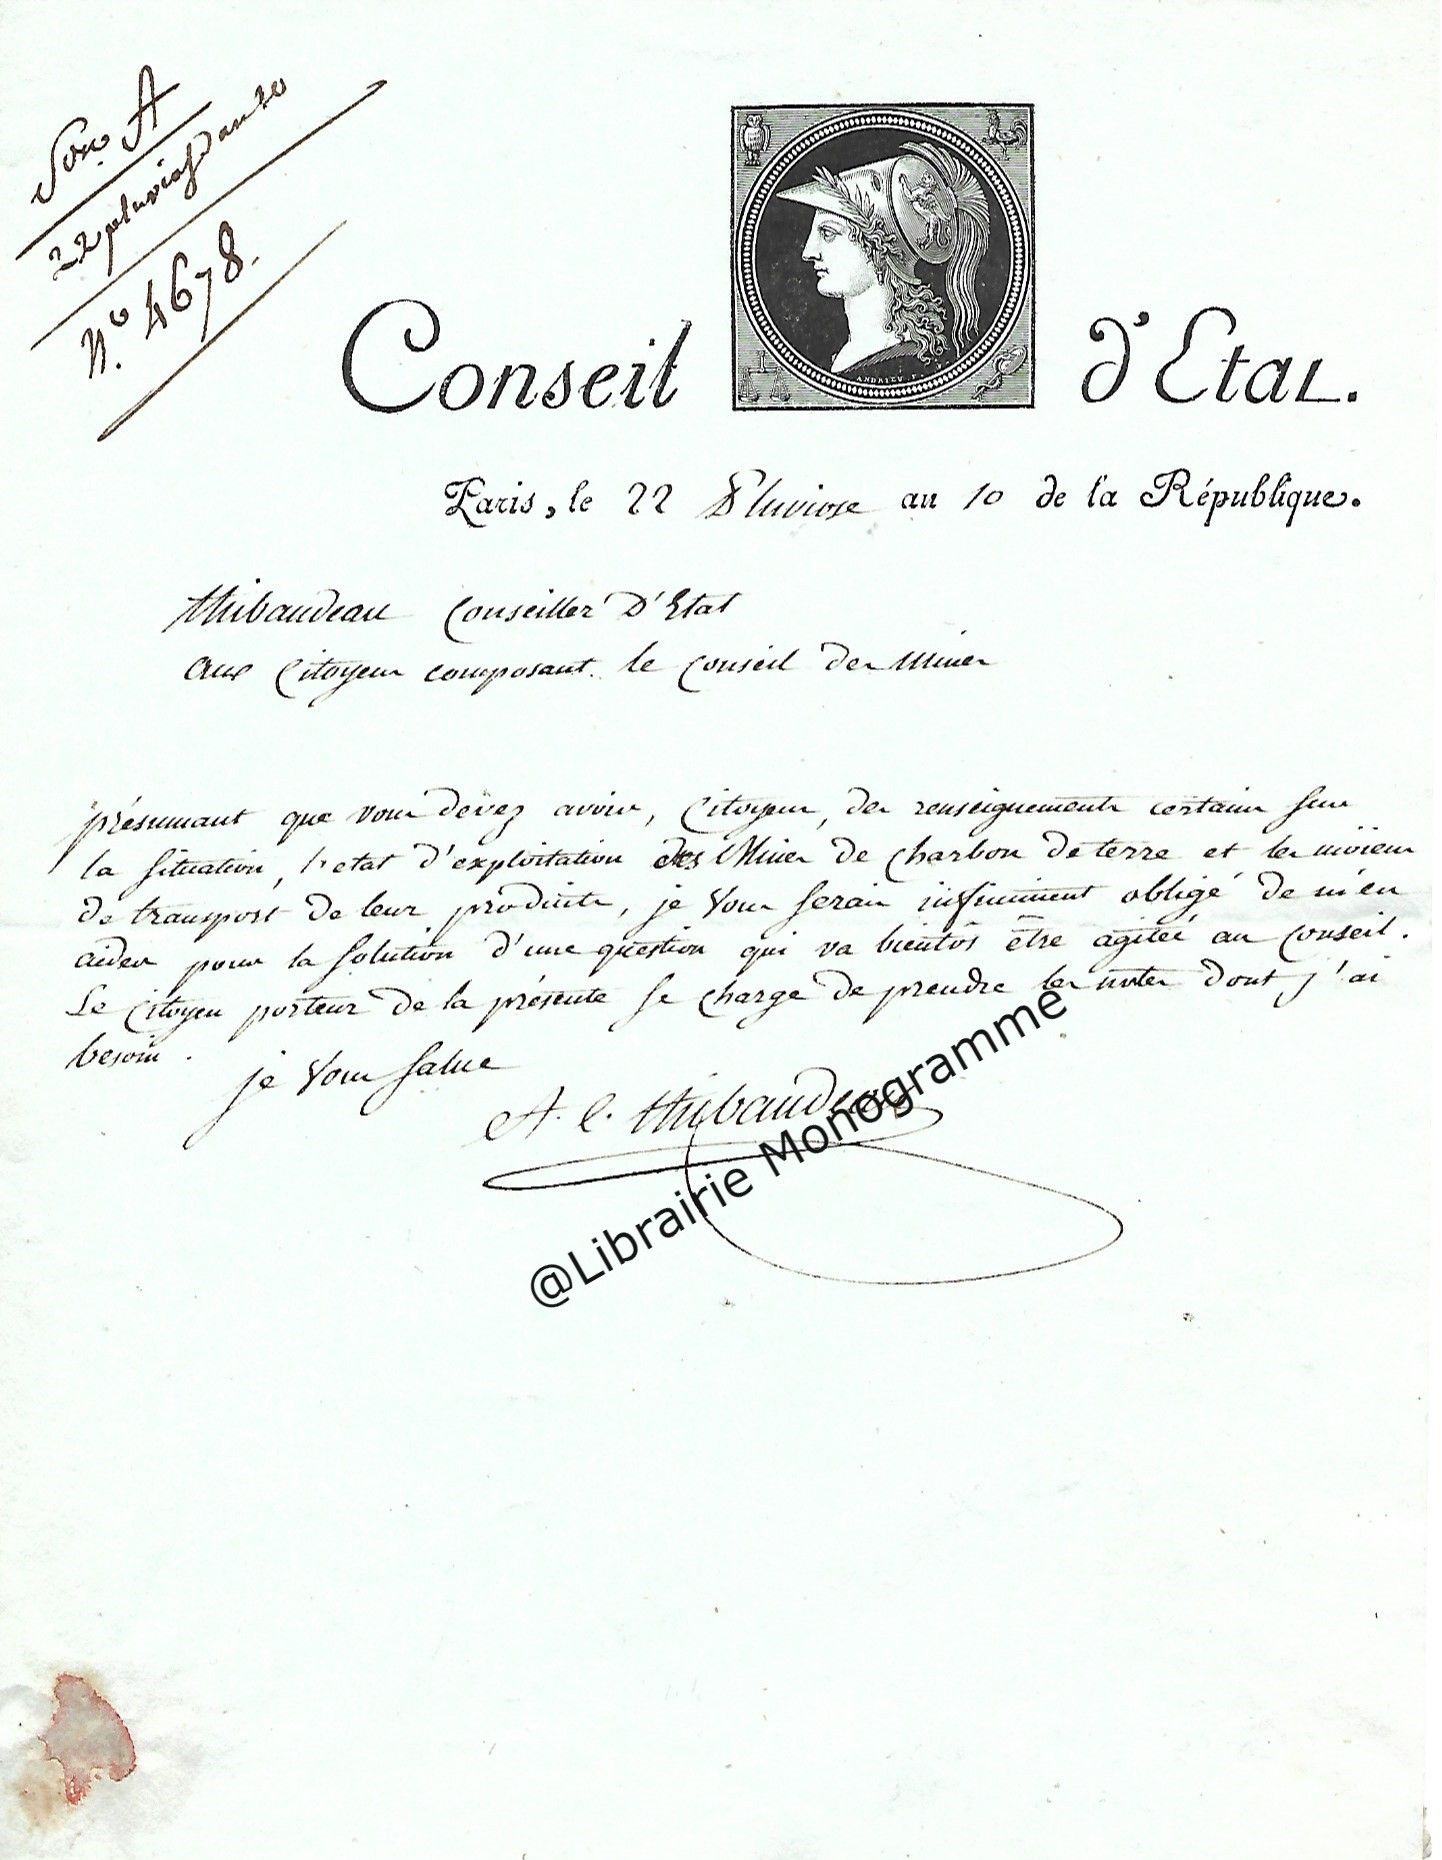 Son. A
22 pluviose an 10
N.o 4678.
ANDRIEU F.
Conseil d'Etat.
Paris, le 22 Pluviose an 10 de la République.
Thibaudeau Conseiller D'Etat
aux Citoyens composant le Conseil des Mines
présumant que vous devez avoir, Citoyens, des renseignements certains sur
la situation, l'etat d'exploitation des Mines de charbon de terre et les moïens
de transport de leurs produits, je vous serais infiniment obligé de m'en
aider pour la solution d'une question qui va bientôt être agitée au Conseil.
Le Citoyen porteur de la présente se charge de prendre les notes dont j'ai
besoin.
je vous salue
A. C. Thibaudeau
@Librairie Monogramme